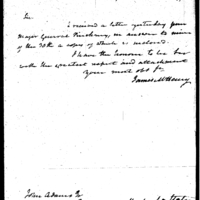 Sir
I received a letter yesterday from
Major General Pinckney, in answer to mine
of the 30th a copy of which is inclosed.
I have the honour to be
with the greatest respect and attachment
Your most obt
James McHenry
John Adams